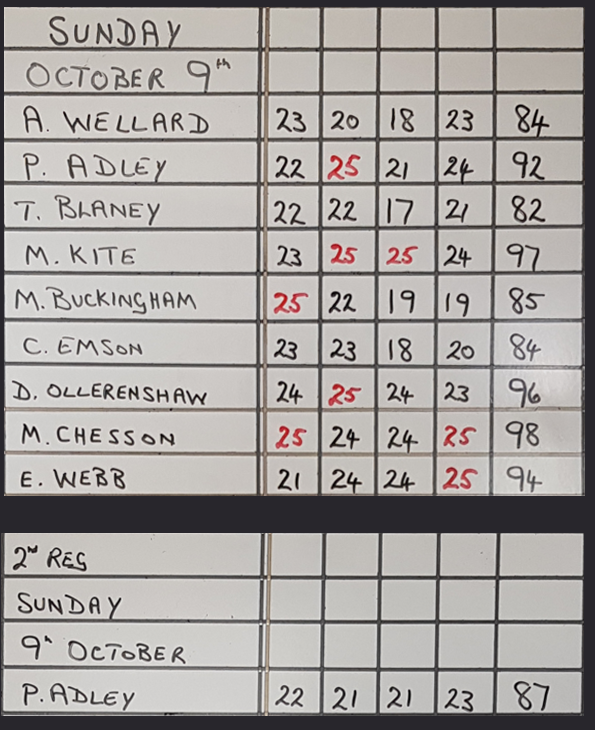 SUNDAY
OCTOBER 9th
A. WELLARD 23 20 18 23 84
P. ADLEY 22 25 21 24 92
T. BLANEY 22 22 17 21 82
M. KITE 23 25 25 24 97
M. BUCKINGHAM 25 22 19 19 85
C. EMSON 23 23 18 20 84
D. OLLERENSHAW 24 25 24 23 96
M. CHESSON 25 24 24 25 98
E. WEBB 21 24 24 25 94
2nd REG
SUNDAY
9th OCTOBER
P. ADLEY 22 21 21 23 87